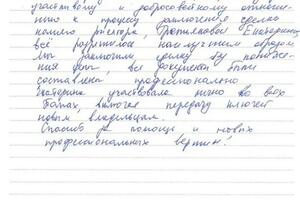 участливому и добросовестному отноше-
нию к процессу заключения сделки
нашего риелтора, Третьяковой Екатерины
всё разрешилось наилучшим образом
Мы заключили сделку без
все документы были
составлены профессионально
Екатерина участвовала лично во всех
этапах, включая передачу ключей
новым владельцам.
Спасибо за помощь и новых
профессиональных вершин!